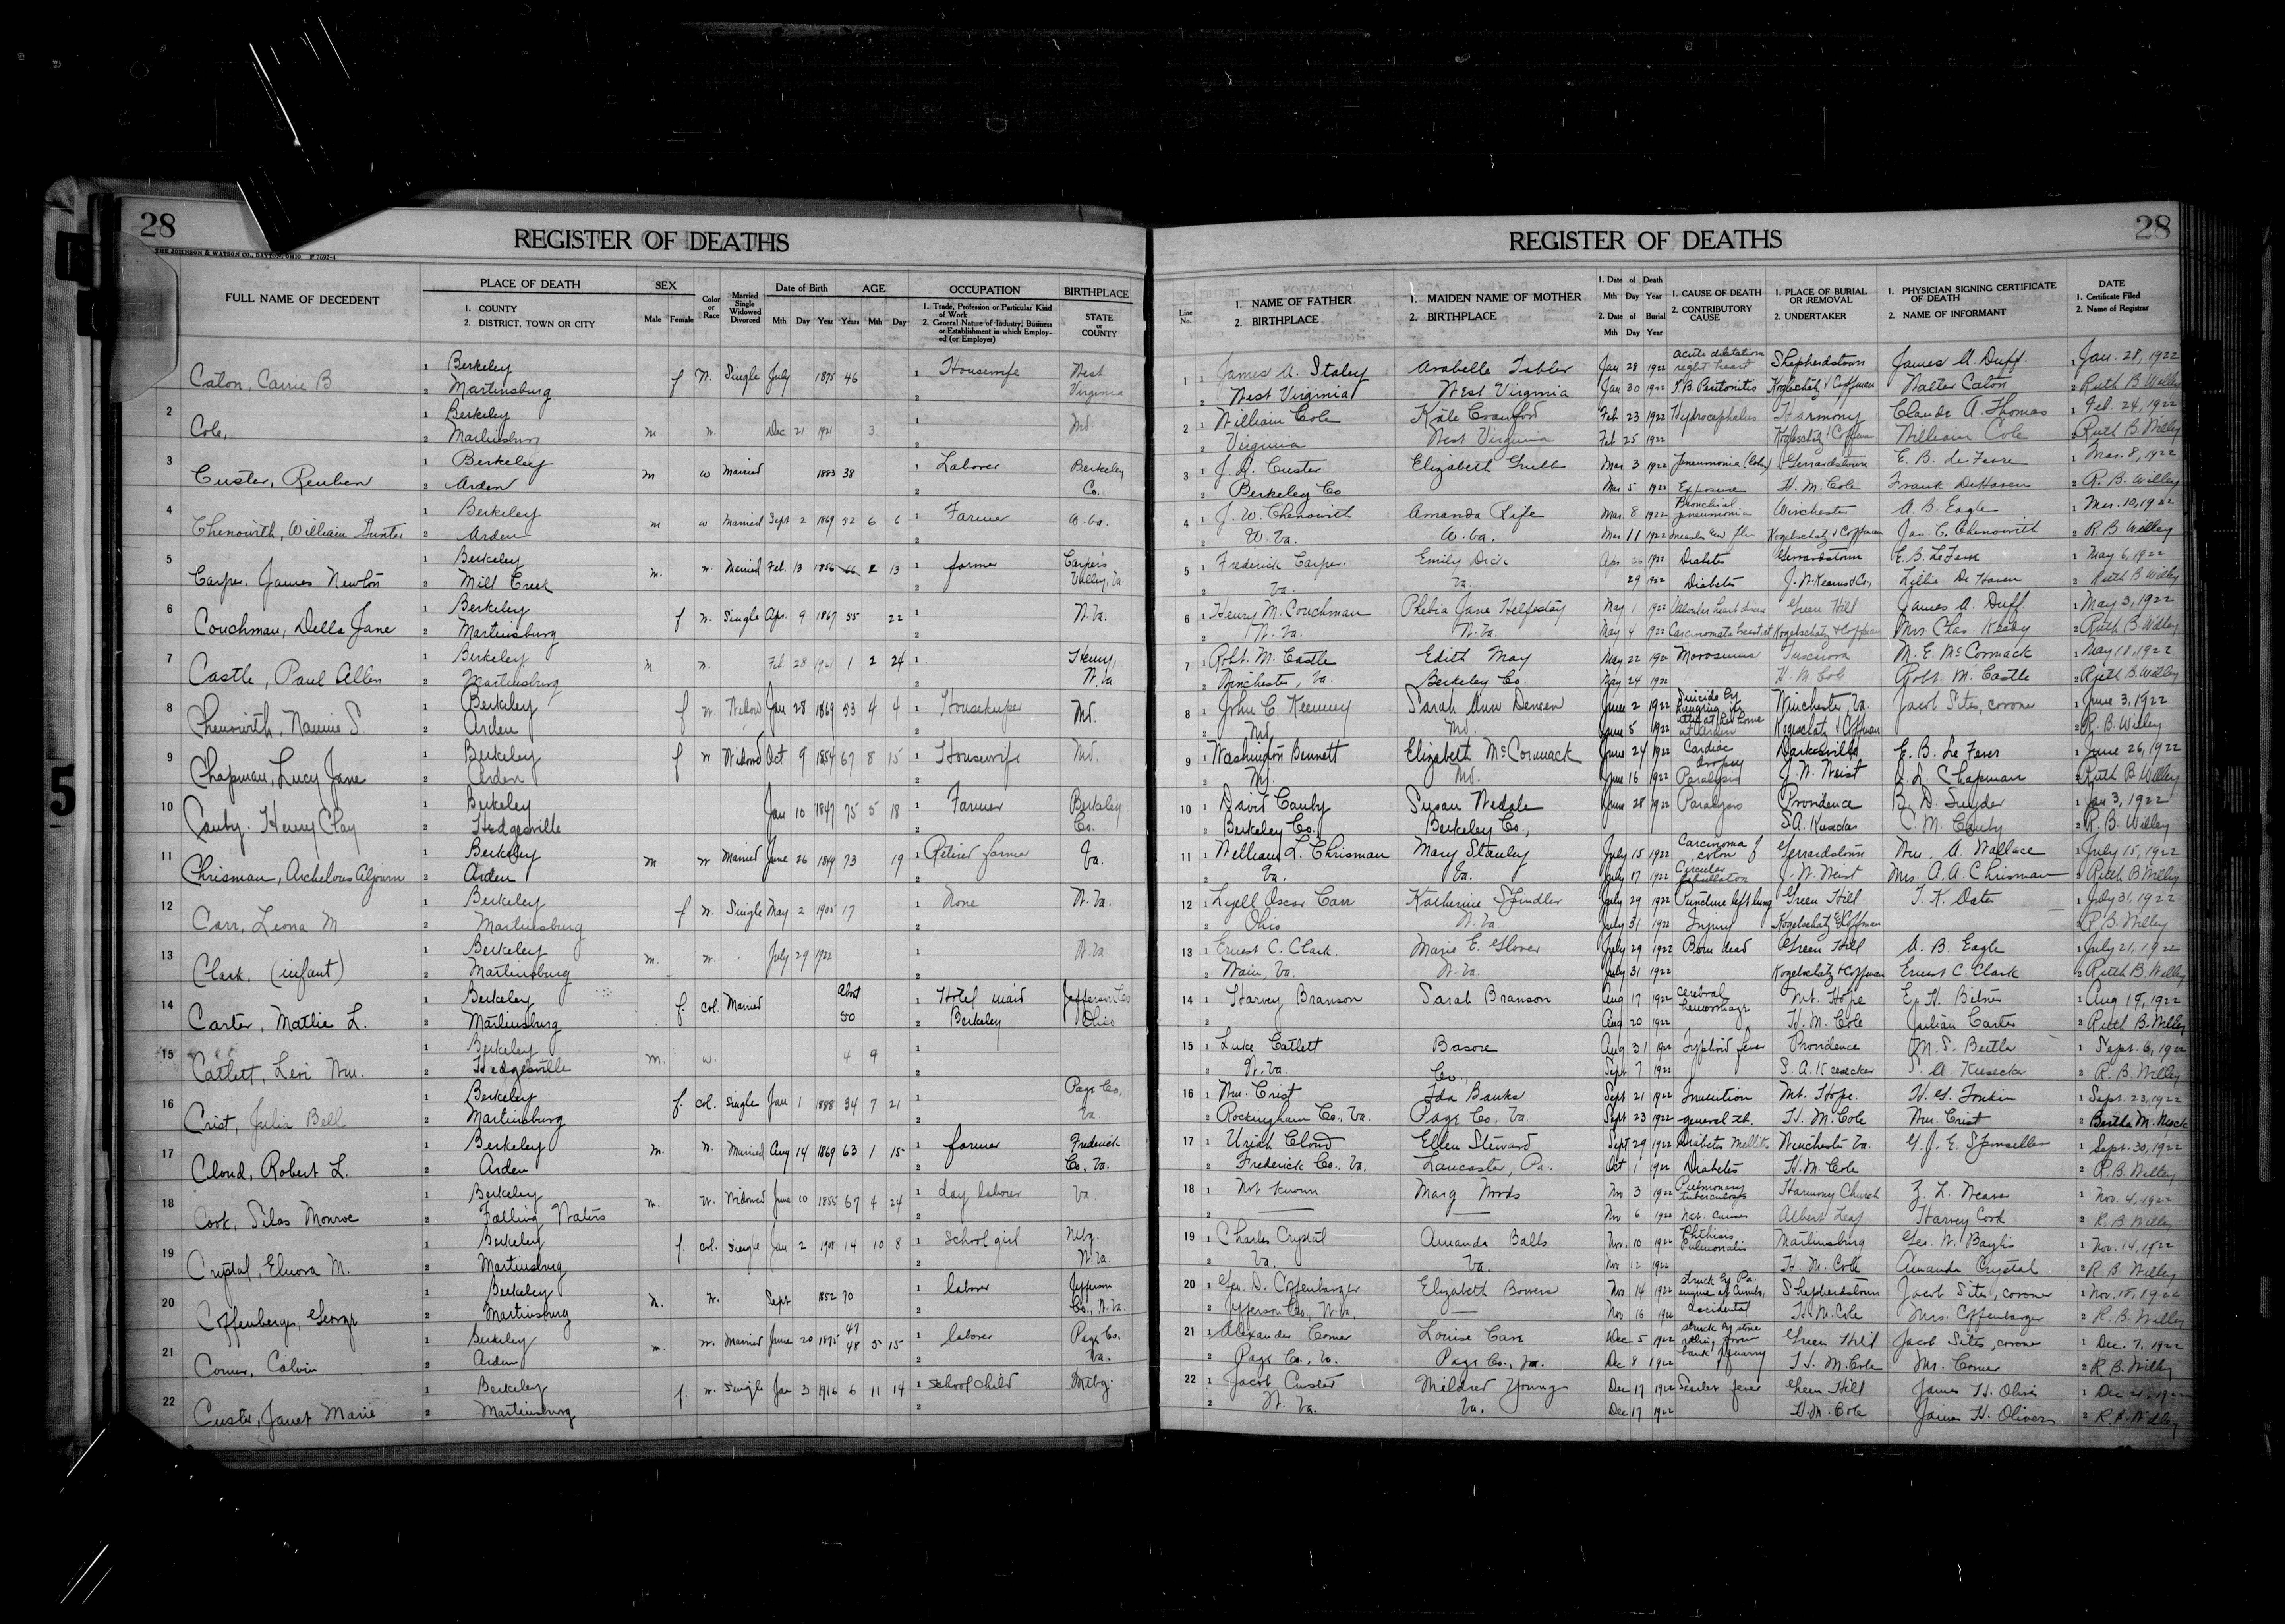 28
REGISTER OF DEATHS
THE JOHNSON & WATSON CO., DAYTON, OHIO P 7092-4
FULL NAME OF DECEDENT
PLACE OF DEATH
1. COUNTY
2. DISTRICT, TOWN OR CITY
SEX
Male Female
Color or Race
Married Single Widowed Divorced
Date of Birth
Mth Day Year
AGE
Years Mth Day
OCCUPATION
1. Trade, Profession or Particular Kind of Work
2. General Nature of Industry, Business or Establishment in which Employed (or Employer)
BIRTHPLACE
STATE or COUNTY
1 Berkeley Housewife West
Caton, Carrie B 2 Martinsburg f W. Single July 1875 46 Virginia
2 1 Berkeley
Cole, 2 Martinsburg m w. Dec 21 1921 3 Md.
3 1 Berkeley 1 Laborer Berkeley
Custer, Reuben 2 Arden m w Married 1883 38 2 Co.
4 1 Berkeley 1 Farmer W.Va.
Chenowith, William Hunter 2 Arden m w Married Sept 2 1869 52 6 6 2
5 1 Berkeley 1 farmer Carper's
Carper, James Newton 2 Mill Creek m. w. Married Feb. 13 1856 66 2 13 2 Valley, Va.
6 1 Berkeley 1 W.Va.
Couchman, Della Jane 2 Martinsburg f w. Single Apr. 9 1867 55 22 2
7 1 Berkeley 1 Henry,
Castle, Paul Allen 2 Martinsburg m w. Feb 28 1921 1 2 24 2 W.Va.
8 1 Berkeley 1 Housekeeper Md.
Chenowith, Nannie S. 2 Arden f w. Widow Jan 28 1869 53 4 4 2
9 1 Berkeley 1 Housewife Md.
Chapman, Lucy Jane 2 Arden f w Widowed Oct 9 1854 67 8 15 2
10 1 Berkeley 1 Farmer Berkeley
Canby. Henry Clay 2 Hedgesville Jan 10 1847 75 5 18 2 Co.
11 1 Berkeley 1 Retired farmer Va.
Chrisman, Archelous 2 Arden m w Married June 26 1849 73 19 2
12 1 Berkeley 1 None W.Va.
Carr, Leona M. 2 Martinsburg f w. Single May 2 1905 17 2
13 1 Berkeley 1 W.Va.
Clark. (infant) 2 Martinsburg m. w. July 29 1922 2
14 1 Berkeley About 1 Hotel maid Jefferson Co
Carter, Mattie L. 2 Martinsburg f. col. Married 50 2 Berkeley Ohio
15 1 Berkeley 1
Catlett, Levi Wm. 2 Hedgesville m. w. 4 9 2
16 1 Berkeley 1 Page Co.
Crist, Julia Bell 2 Martinsburg f. col. Single Jan 1 1888 34 7 21 2 Va.
17 1 Berkeley 1 farmer Frederick
Cloud, Robert L. 2 Arden m. w. Married Aug 14 1869 63 1 15 2 Co. Va.
18 1 Berkeley 1 day laborer Va.
Cook, Silas Monroe 2 Falling Waters m. w. Widowed June 10 1855 67 4 24 2
19 1 Berkeley 1 school girl Mtbg.
Crystal, Elnora M. 2 Martinsburg f. col. Single Jan 2 1908 14 10 8 2 W.Va.
20 1 Berkeley 1 laborer Jefferson
Coffenberger, George 2 Martinsburg m. w. Sept 1852 70 2 Co., W.Va.
21 1 Berkeley 47 1 laborer Page Co.
Comer, Calvin 2 Arden m. w. Married June 20 1875 48 5 15 2 Va.
22 1 Berkeley 1 school child Mtbg.
Custer, Janet Marie 2 Martinsburg f. w. Single Jan 3 1916 6 11 14 2
28
REGISTER OF DEATHS
Line No.
1. NAME OF FATHER
2. BIRTHPLACE
1. MAIDEN NAME OF MOTHER
2. BIRTHPLACE
1. Date of Death
Mth Day Year
2. Date of Burial
Mth Day Year
1. CAUSE OF DEATH
2. CONTRIBUTORY CAUSE
1. PLACE OF BURIAL OR REMOVAL
2. UNDERTAKER
1. PHYSICIAN SIGNING CERTIFICATE OF DEATH
2. NAME OF INFORMANT
DATE
1. Certificate Filed
2. Name of Registrar
1 1 James A. Staley Arabelle Tabler Jan 28 1922 acute dilatation right heart Shepherdstown James A. Duff. 1 Jan. 28, 1922
2 West Virginia West Virginia Jan 30 1922 TB Peritonitis Kogelschatz & Coffman Walter Caton 2 Ruth B Willey
2 1 William Cole Kate Crawford Feb 23 1922 Hydrocephalus Harmony Claude A. Thomas 1 Feb. 24, 1922
2 Virginia West Virginia Feb 25 1922 Kogelschatz & Coffman William Cole 2 Ruth B. Willey
3 1 J. Custer Elizabeth Grubb Mar 3 1922 Pneumonia (Lobar) Gerrardstown E. B. Le Fevre 1 Mar. 8, 1922
2 Berkeley Co Mar 5 1922 Exposure H. M. Cole Frank DeHaven 2 R. B. Willey
4 1 J. W. Chenowith Amanda Rife Mar. 8 1922 Bronchial pneumonia Winchester A. B. Eagle 1 Mar. 10, 1922
2 W. Va. W. Va. Mar 11 1922 Kogelschatz & Coffman Jas. C. Chenowith 2 R. B. Willey
5 1 Frederick Carper. Emily Dick Apr 26 1922 Diabetes Gerrardstown E. B. LeFevre 1 May 6, 1922
2 Va. Va. 29 1922 Diabetes J. W. Kearns & Co., Lillie De Haven 2 Ruth B Willey
6 1 Henry M. Couchman Phebia Jane May 1 1922 Valvular heart disease Green Hill James A. Duff. 1 May 3, 1922
2 W. Va. W. Va. May 4 1922 Carcinomata Kogelschatz & Coffman Mrs Chas. Keady 2 Ruth B Willey
7 1 Robt. M. Castle Edith May May 22 Marasmus Tuscarora M. E. McCormack 1 May 1922
2 Winchester, Va. Berkeley Co. May 24 1922 H. M. Cole Robt. M. Castle 2 Ruth B. Willey
8 1 John C. Keenney Sarah Ann Deneen June 2 1922 Suicide by hanging Winchester, Va. Jacob Sites, coroner 1 June 3, 1922
2 Md. Md. June 5 1922 at her home at Arden Kogelschatz & Coffman 2 R. B. Willey
9 1 Washington Bennett Elizabeth McCormack June 24 1922 Cardiac dropsy Darkesville E. B. Le Fever 1 June 26, 1922
2 Md. Md. June 16 1922 Paralysis J. W. Weist Chapman 2 Ruth B Willey
10 1 David Canby Susan June 28 1922 Paralysis Providence B. D. Snyder 1 3, 1922
2 Berkeley Co. Berkeley Co., S.A. C. M. Canby 2 R. B. Willey
11 1 William L. Chrisman Mary Stanley July 15 1922 Carcinoma of colon Gerrardstown Wm. A. Wallace 1 July 15, 1922
2 Va. Va. July 17 1922 J. W. Weist Mrs. A. A. Chrisman 2 Ruth B Willey
12 1 Lyell Oscar Carr Katherine Spindler July 29 1922 Puncture left lung Green Hill T. K. Oates 1 July 31, 1922
2 Ohio W. Va July 31 1922 Injury Kogelschatz & Coffman 2 R. B. Willey
13 1 Ernest C. Clark. Marie E. Glover July 29 1922 Born dead Green Hill A. B. Eagle 1 July 21, 1922
2 Va. W. Va. July 31 1922 Kogelschatz & Coffman Ernest C. Clark 2 Ruth B. Willey
14 1 Harvey Branson Sarah Branson Aug 17 1922 cerebral hemorrhage Mt. Hope E. H. Bitner 1 Aug 19, 1922
2 Aug 20 1922 H. M. Cole Julian Carter 2 Ruth B. Willey
15 1 Luke Catlett Basore Aug 31 1922 Typhoid fever Providence M. S. Butler 1 Sept. 6, 1922
2 W. Va. Co., Sept 7 1922 S. A. S. A. 2 R. B. Willey
16 1 Wm. Crist Ida Banks Sept 21 1922 Inanition Mt. Hope. H. G. Tonkin 1 Sept. 23, 1922
2 Rockingham Co., Va. Page Co. Va. Sept 23 1922 general tb. H. M. Cole Wm. Crist 2 Bertha M.
17 1 Uriah Cloud Ellen Steward Sept 29 1922 Diabetes Mellitus Winchester Va. G. J. E. Sponseller 1 Sept. 30, 1922
2 Frederick Co., Va. Lancaster, Pa. Oct 1 1922 Diabetes H. M. Cole 2 R. B. Willey
18 1 Not known Marg Woods Nov 3 1922 Pulmonary tuberculosis Harmony Church Z. L. Weaver 1 Nov. 4, 1922
2 Nov 6 1922 Albert Leaf Harvey Cook 2 R. B. Willey
19 1 Charles Crystal Amanda Balls Nov. 10 1922 Phthisis Pulmonalis Martinsburg Geo. W. Baylis 1 Nov. 14, 1922
2 Va. Va. Nov 12 1922 H. M. Cole Amanda Crystal 2 R. B. Willey
20 1 Geo. D. Coffenbarger Elizabeth Bowers Nov 14 1922 struck by Pa. engine at Cumb., Shepherdstown Jacob Sites, coroner 1 Nov. 15, 1922
2 Jefferson Co., W. Va. Nov 16 1922 accidental H. M. Cole Mrs. Coffenbarger 2 R. B. Willey
21 1 Alexander Comer Louise Carr Dec 5 1922 struck by stone from bank of quarry Green Hill Jacob Sites, coroner 1 Dec. 7, 1922
2 Page Co., Va. Page Co., Va. Dec 8 1922 H. M. Cole Mr. Comer 2 R. B. Willey
22 1 Jacob Custer Mildred Young Dec 17 1922 Scarlet fever Green Hill James H. Oliver 1 Dec 1922
2 W. Va. Va. Dec 17 1922 H. M. Cole James H. Oliver 2 R. B. Willey
5